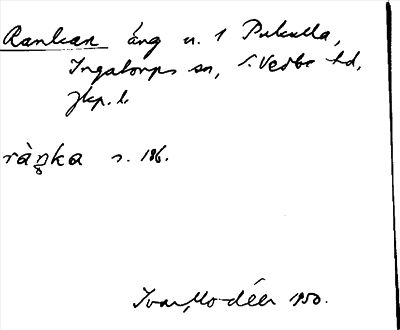 Rankan äng u. 1 Pukulla,
Ingatorps sn, S. Vedbo hd,
Jkp. l.
ràŋka s. 186.
Ivar Modéer 1950.